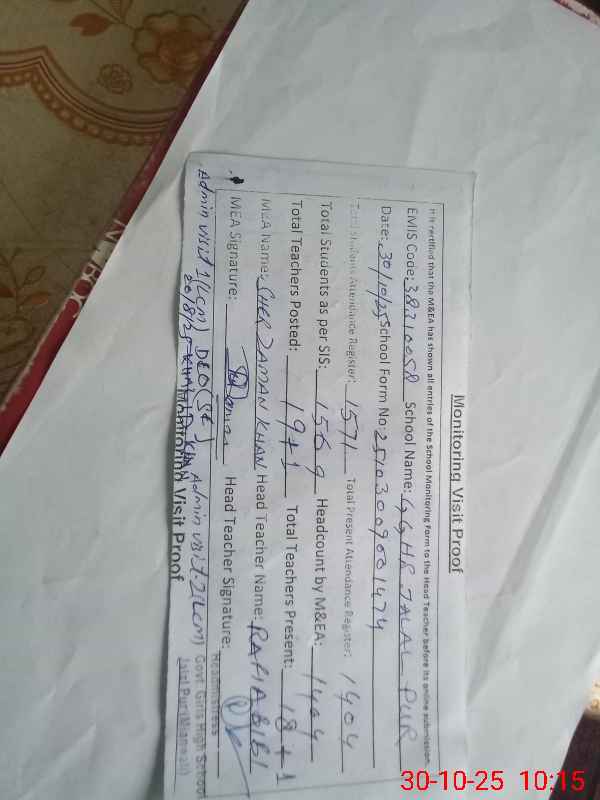 Monitoring Visit Proof
It is certified that the M&EA has shown all entries of the School Monitoring Form to the Head Teacher before its online submission.
EMIS Code: 38310058 School Name: GGHS JALAL PUR
Date: 30/10/25 School Form No: 2510300900 1474
Total Students Attendance Register: 1571 Total Present Attendance Register: 1404
Total Students as per SIS: 1569 Headcount by M&EA: 1404
Total Teachers Posted: 19+1 Total Teachers Present: 18+1
MEA Name: SHER ZAMAN KHAN Head Teacher Name: RAFIA BIBI
MEA Signature: Head Teacher Signature:
Headmistress
Govt. Girls High School
Jalal Pur (Mianwali)
Admin visit 1(LCM) DEO(SE) Admin visit. 2(LCM)
20/8/25 KHALID KHAN
Monitoring Visit Proof
30-10-25 10:15